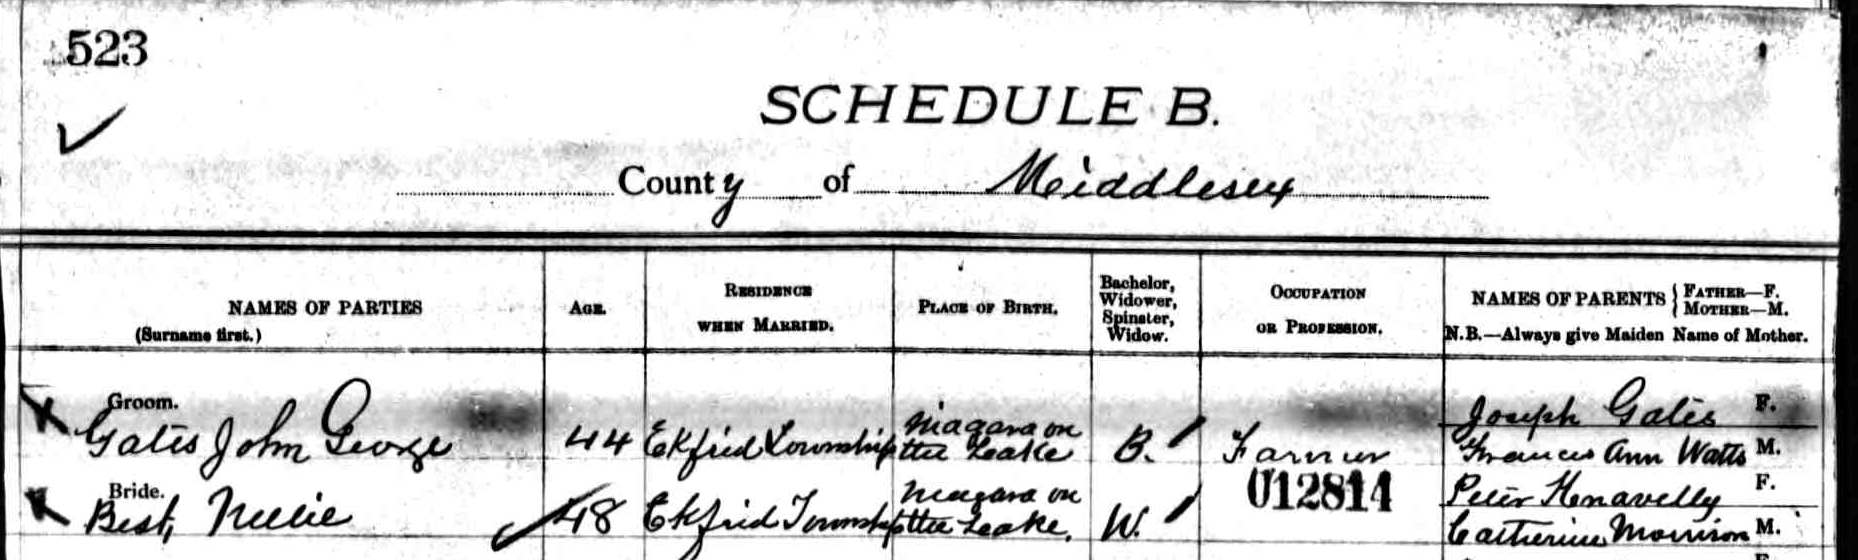 523
SCHEDULE B.
County of Middlesex
NAMES OF PARTIES
(Surname first.)
AGE.
RESIDENCE
WHEN MARRIED.
PLACE OF BIRTH.
Bachelor,
Widower,
Spinster,
Widow.
OCCUPATION
OR PROFESSION.
NAMES OF PARENTS { FATHER—F.
MOTHER—M.
N.B.—Always give Maiden Name of Mother.
Groom.
Gates John George
44
Ekfrid Township
Niagara on
the Leake
B.
Farmer
Joseph Gates F.
Frances Ann Watts M.
Bride.
Best, Nellie
48
Ekfrid Township
Niagara on
the Leake.
W.
012814
Peter F.
Catherine Morrison M.